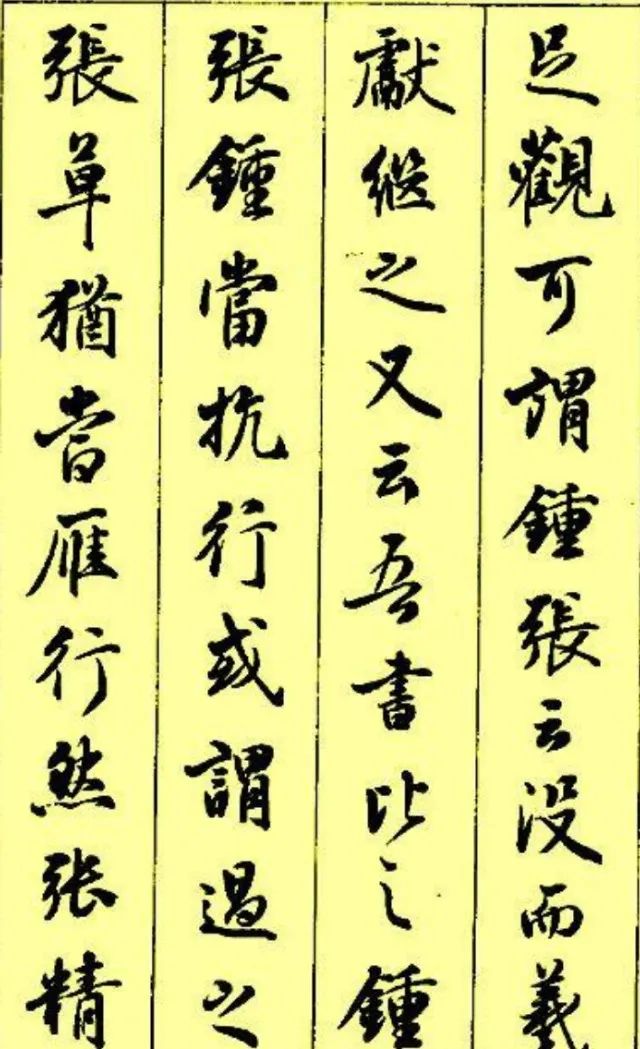 足觀可謂鍾張云沒而羲
獻継之又云吾書比之鍾
張鍾當抗行或謂過之
張草猶當雁行然張精